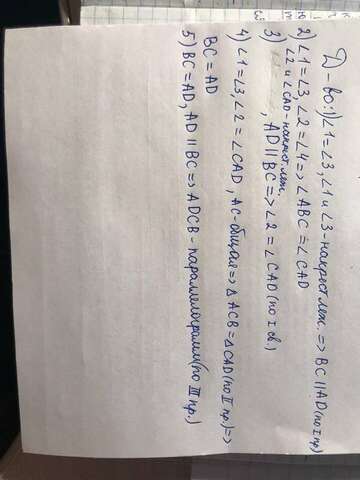 Д-во: 1) ∠1=∠3, ∠1 и ∠3-накрест леж. => BC || AD (по I пр)
2) ∠1=∠3, ∠2=∠4 => ∠ABC = ∠CAD
∠2 и ∠CAD-накрест. леж.
3) , AD || BC => ∠2 = ∠CAD (по I св.)
4) ∠1=∠3, ∠2 = ∠CAD, AC-общая => △ACB = △CAD (по II пр.) =>
BC = AD
5) BC = AD, AD || BC => ADCB - параллелограмм (по III пр.)